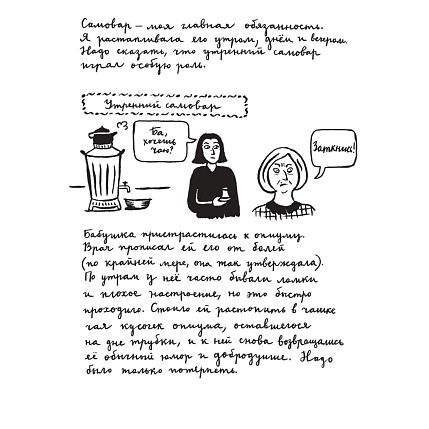 Самовар – моя главная обязанность.
Я растапливала его утром, днём и вечером.
Надо сказать, что утренний самовар
играл особую роль.
Утренний самовар
Ба,
хочешь
чаю?
Заткнись!
Бабушка пристрастилась к опиуму.
Врач прописал ей его от болей
(по крайней мере, она так утверждала).
По утрам у неё часто бывали ломки
и плохое настроение, но это быстро
проходило. Стоило ей растопить в чашке
чая кусочек опиума, оставшегося
на дне трубки, и к ней снова возвращались
её обычный юмор и добродушие. Надо
было только потерпеть.